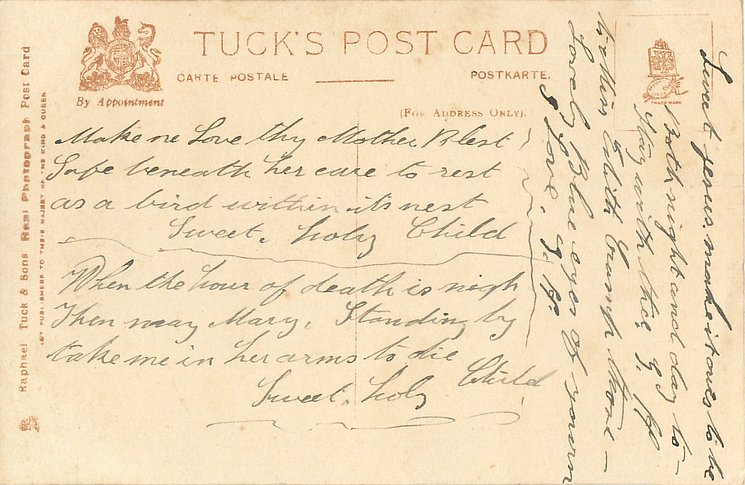 TUCK'S POST CARD
CARTE POSTALE
POSTKARTE.
By Appointment
(FOR ADDRESS ONLY).
TRADE MARK
Make me Love thy Mother Blest
Safe beneath her care to rest
as a bird within its nest
Sweet, holy Child
When the hour of death is nigh
Then may Mary, Standing by
take me in her arms to die
Sweet, holy Child
Sweet jesus make it ours to be
Both night and day to
Stay with thee
to Miss Edith
Lovely Blue eyes of yours
I love,
Raphael Tuck & Sons Real Photograph Post Card
ART PUBLISHERS TO THEIR MAJESTIES THE KING & QUEEN